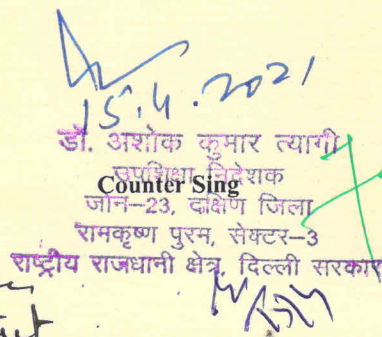 15.4.2021
डॉ. अशोक कुमार त्यागी
उपशिक्षा निदेशक
Counter Sing
जोन-23, दक्षिण जिला
रामकृष्ण पुरम, सेक्टर-3
राष्ट्रीय राजधानी क्षेत्र, दिल्ली सरकार